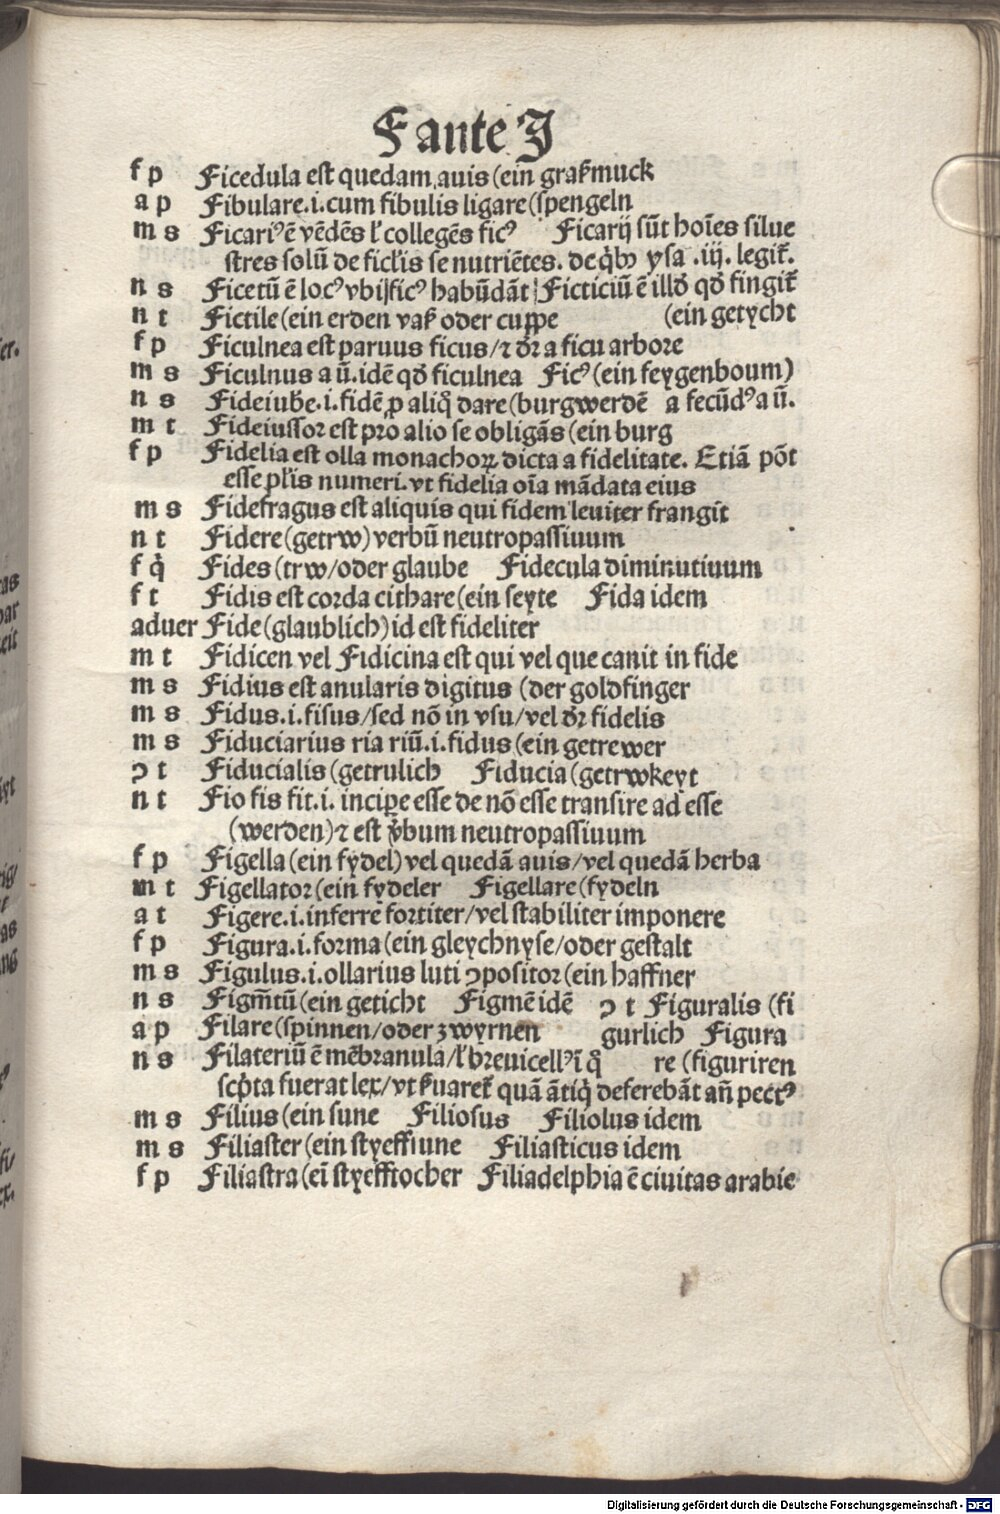 Fante J
f p Ficedula est quedam auis (ein graßmuck
a p Fibulare .i. cum fibulis ligare (spengeln
m s Ficariꝰ ē vēdēs ł collegēs ficꝰ Ficarij sūt hoīes silue
stres solū de ficłis se nutriētes. de q̄bꝫ ysa .iij. legiť.
n s Ficetū ē locꝰ vbi ficꝰ habūdāt Ficticiū ē illđ qđ fingiť
n t Fictile (ein erden vaß oder cuppe (ein getycht
f p Ficulnea est paruus ficus/ ⁊ dr̄ a ficu arbore
m s Ficulnus a ū. idē qđ ficulnea Ficꝰ (ein feygenboum)
n s Fideiube .i. fidē ꝓ aliq̄ dare (burgwerdē a fecūdꝰ a ū.
m t Fideiussor est pro alio se obligās (ein burg
f p Fidelia est olla monachoꝝ dicta a fidelitate. Etiā pōt
esse pl̄is numeri. vt fidelia oīa mādata eius
m s Fidefragus est aliquis qui fidem leuiter frangit
n t Fidere (getrw) verbū neutropassiuum
f q̄ Fides (trw/ oder glaube Fidecula diminutiuum
f t Fidis est corda cithare (ein seyte Fida idem
aduer Fide (glaublich) id est fideliter
m t Fidicen vel Fidicina est qui vel que canit in fide
m s Fidius est anularis digitus (der goldfinger
m s Fidus .i. fisus/ sed nō in vsu/ vel dr̄ fidelis
m s Fiduciarius ria riū .i. fidus (ein getrewer
ꝯ t Fiducialis (getrulich Fiducia (getrwkeyt
n t Fio fis fit .i. incipe esse de nō esse transire ad esse
(werden) ⁊ est v̄bum neutropassiuum
f p Figella (ein fydel) vel quedā auis/ vel quedā herba
m t Figellator (ein fydeler Figellare (fydeln
a t Figere .i. inferre fortiter/ vel stabiliter imponere
f p Figura .i. forma (ein gleychnyse/ oder gestalt
m s Figulus .i. ollarius luti ꝯpositor (ein haffner
n s Figm̄tū (ein geticht Figmē idē ꝯ t Figuralis (fi
a p Filare (spinnen/ oder zwyrnen gurlich Figura
n s Filateriū ē mēbranula/ ł breuicellꝰ ī q̄ re (figuriren
scp̄ta fuerat lex/ vt ẜuareť quā ātiq̄ deferebāt an̄ pectꝰ
m s Filius (ein sune Filiosus Filiolus idem
m s Filiaster (ein styeffsune Filiasticus idem
f p Filiastra (eī styefftocher Filiadelphia ē ciuitas arabie
Digitalisierung gefördert durch die Deutsche Forschungsgemeinschaft - DFG